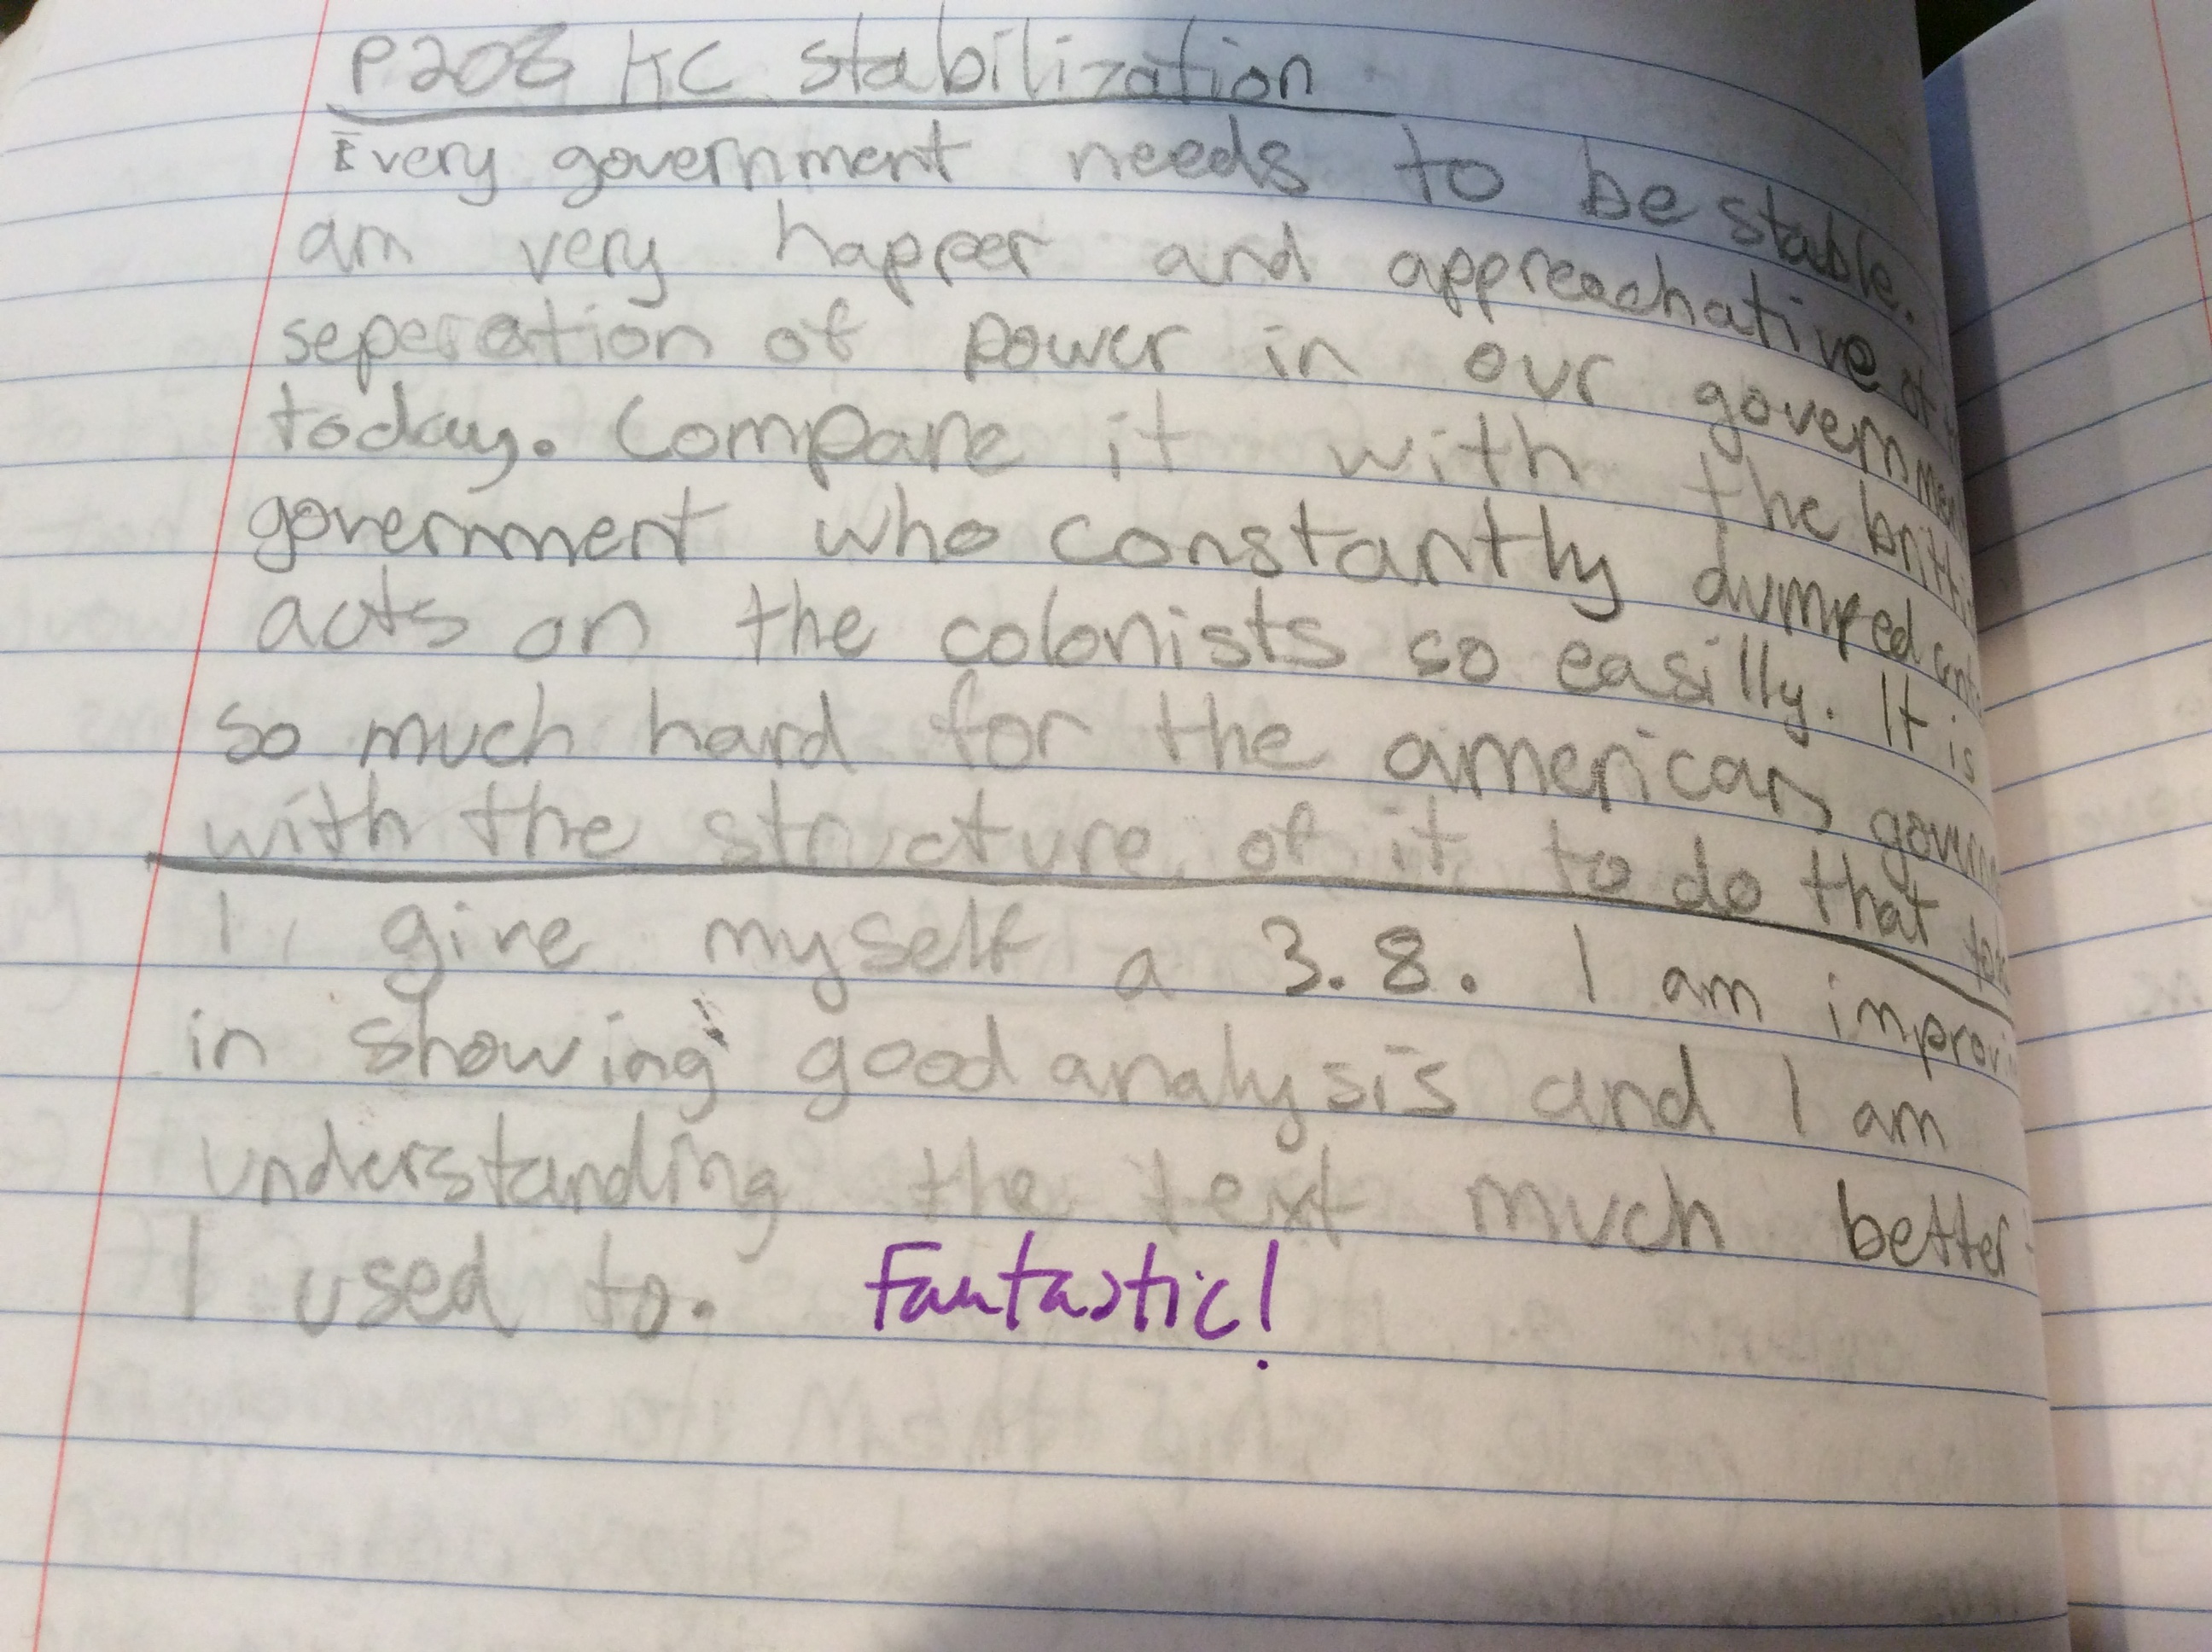 P208 KC stabilization
Every government needs to be stable.
am very happer and appreachative of
seperation of power in our
today. Compare it with the
government who constantly dumped
acts on the colonists so easilly. It is
so much hard for the american
with the structure of it to do that
I give myself a 3.8. I am
in showing good analysis and I am
understanding the text much better
I used to. Fantastic!